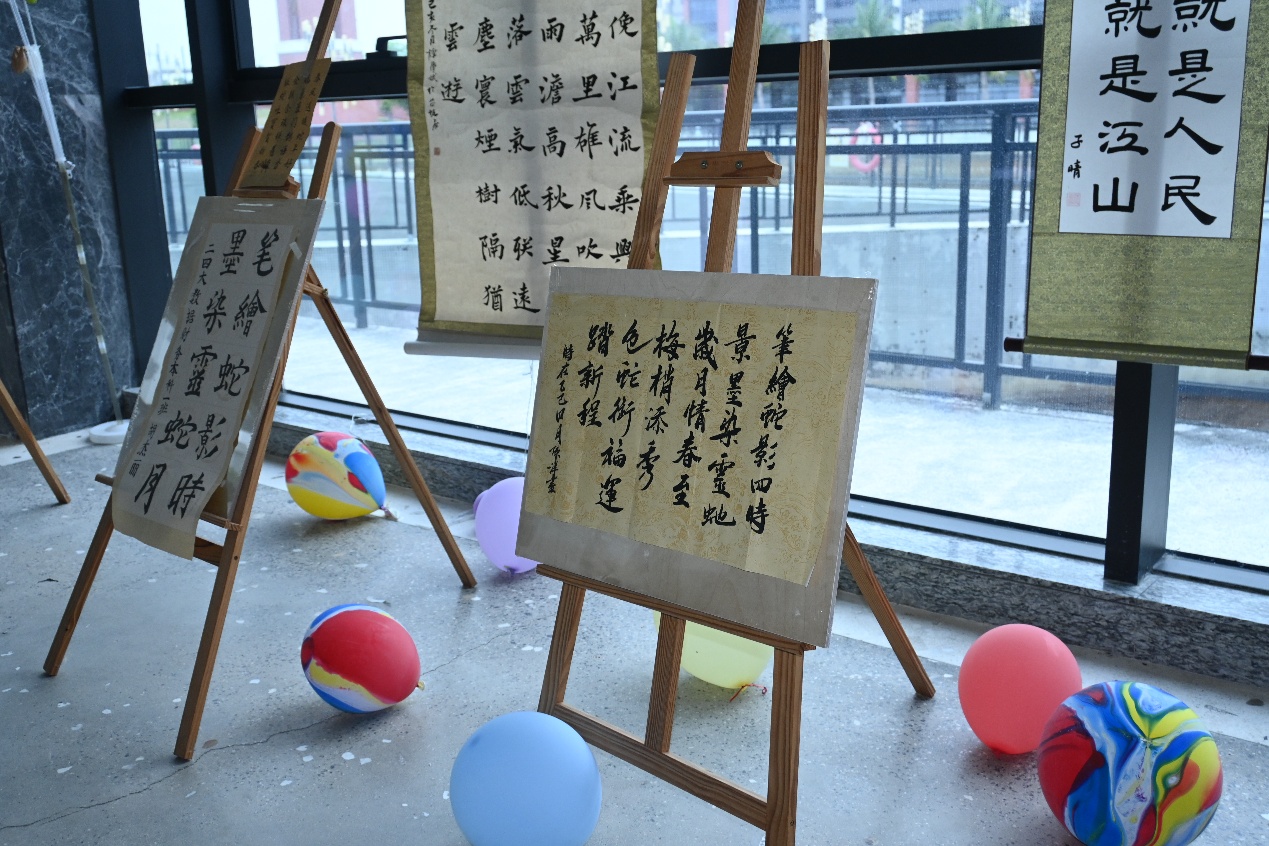 笔繪蛇影時
墨染靈蛇月
俛江流乘興
萬里雄风吹
雨澹高秋星
落雲氣低联遠
塵寰煙樹隔猶
雲遊
筆繪蛇影四時
景墨染靈虵
歲月情春至
梅梢添秀
色蛇銜福運
踏新程
時在乙巳四月
就是人民
就是江山
子晴